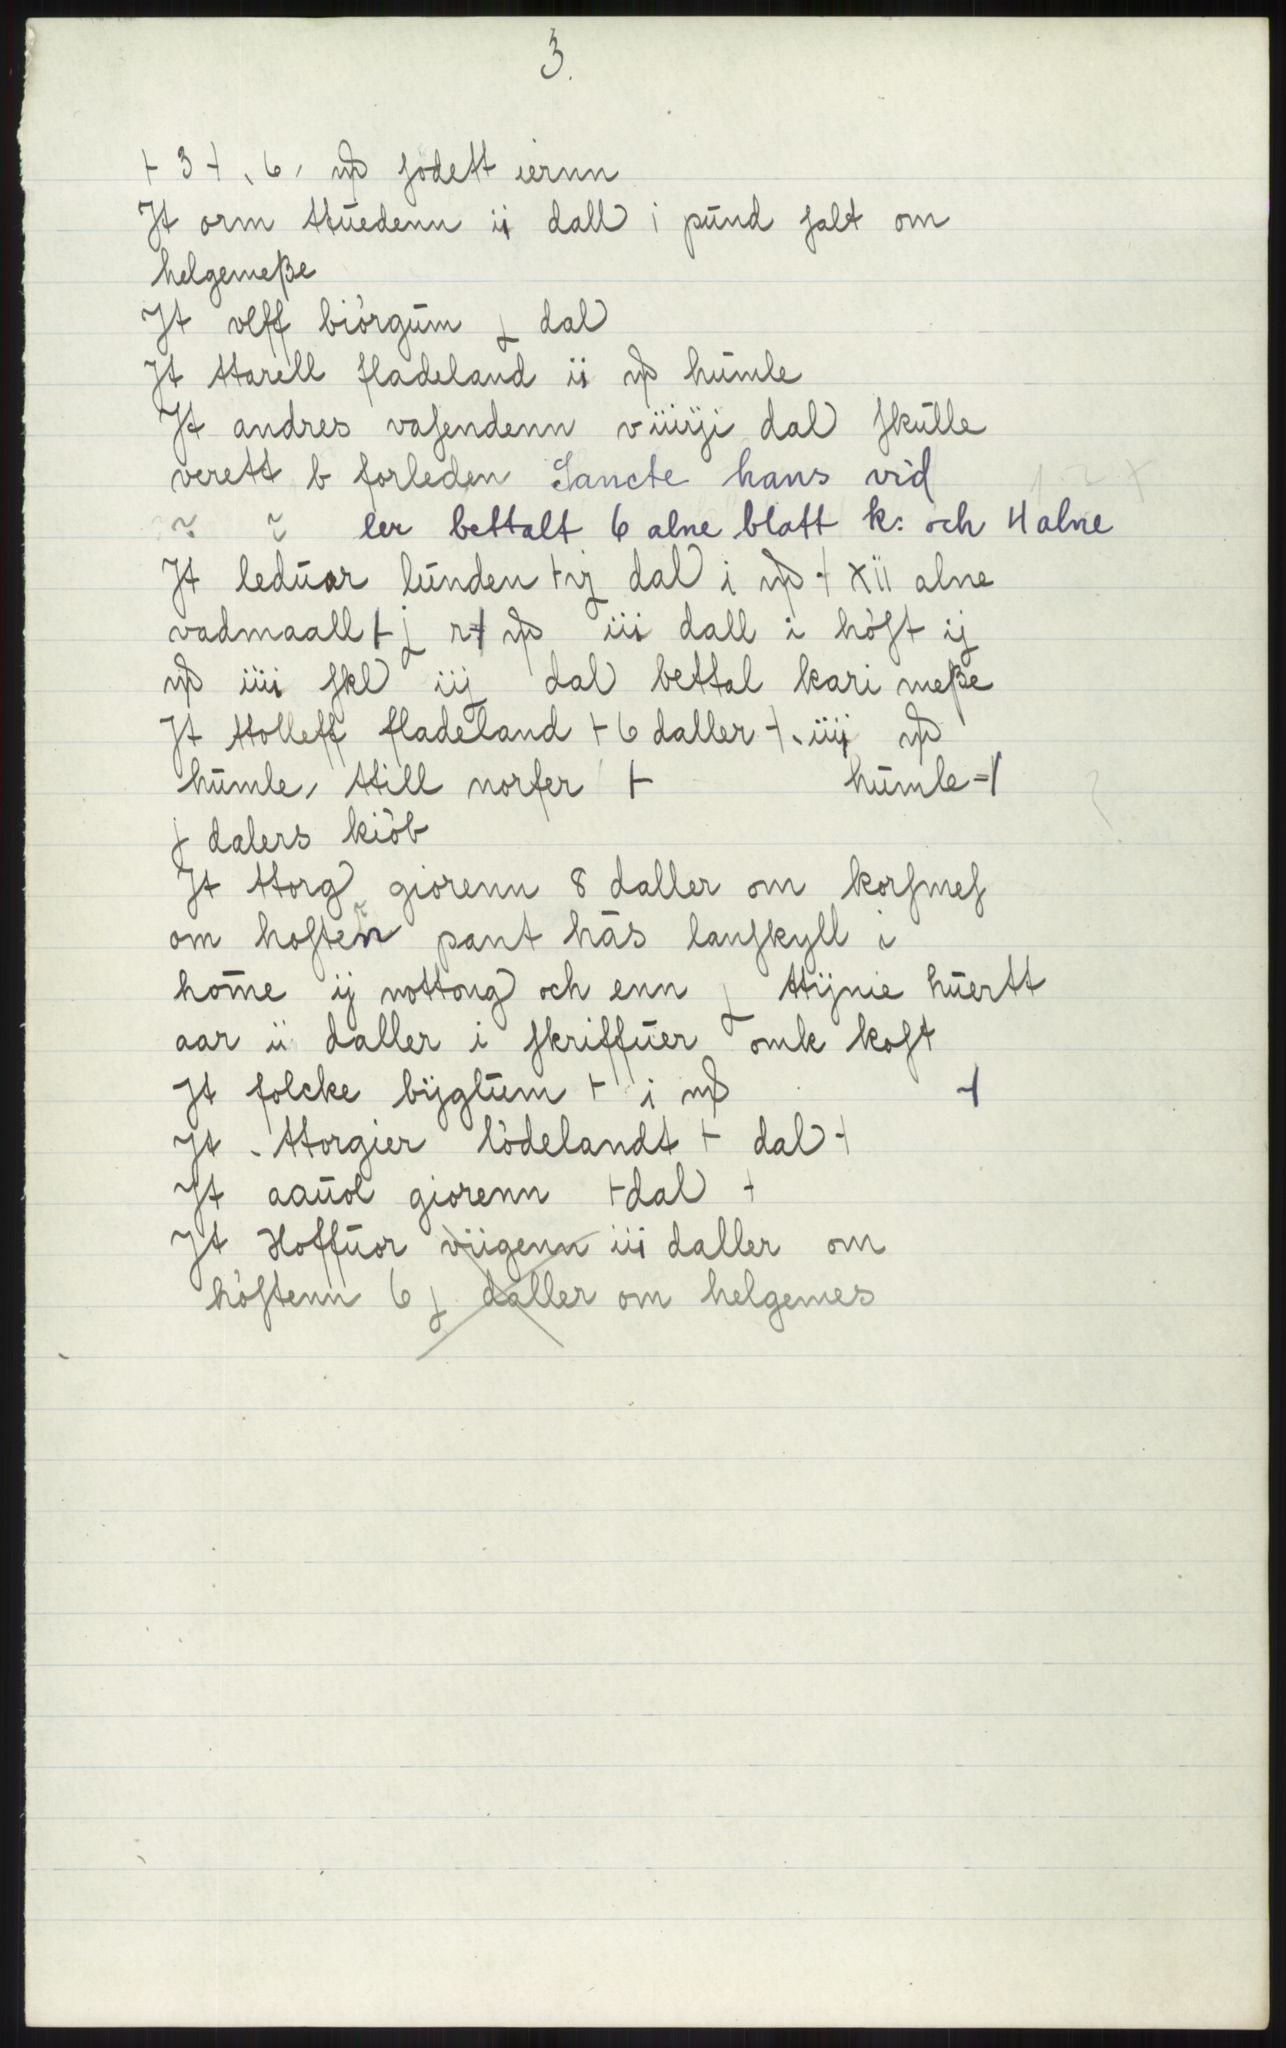 3.
+ 3 +, 6, ɱ sodett iernn
It orm ttuedenn ii dall i pund salt om
helgemeße
It vlff biörgum j dal
It ttarell fladeland ii humle
It andres vasendenn dal skulle
verett b forleden Sancte hans vid
ler bettalt 6 alne blatt k: och 4 alne
It leduar lunden + ij dal i + XII alne
vadmaall + j r + iii dall i höst ij
iiii skl iij dal bettal kari meße
It ttolleff fladeland + 6 daller +, iiij
humle, ttill norfer + humle +
j dalers kiöb
It ttorg giorenn 8 daller om korsmes
om hosten pant hās lanskyll i
home ij nottong och enn j ttijnie huertt
aar ii daller i skriffuer omk kost
It folcke bijglum + i +
It ttorgier lödelandt + dal +
It aauol giorenn + dal +
It Hoffuor viigenn iii daller om
höstenn 6 j daller om helgemes